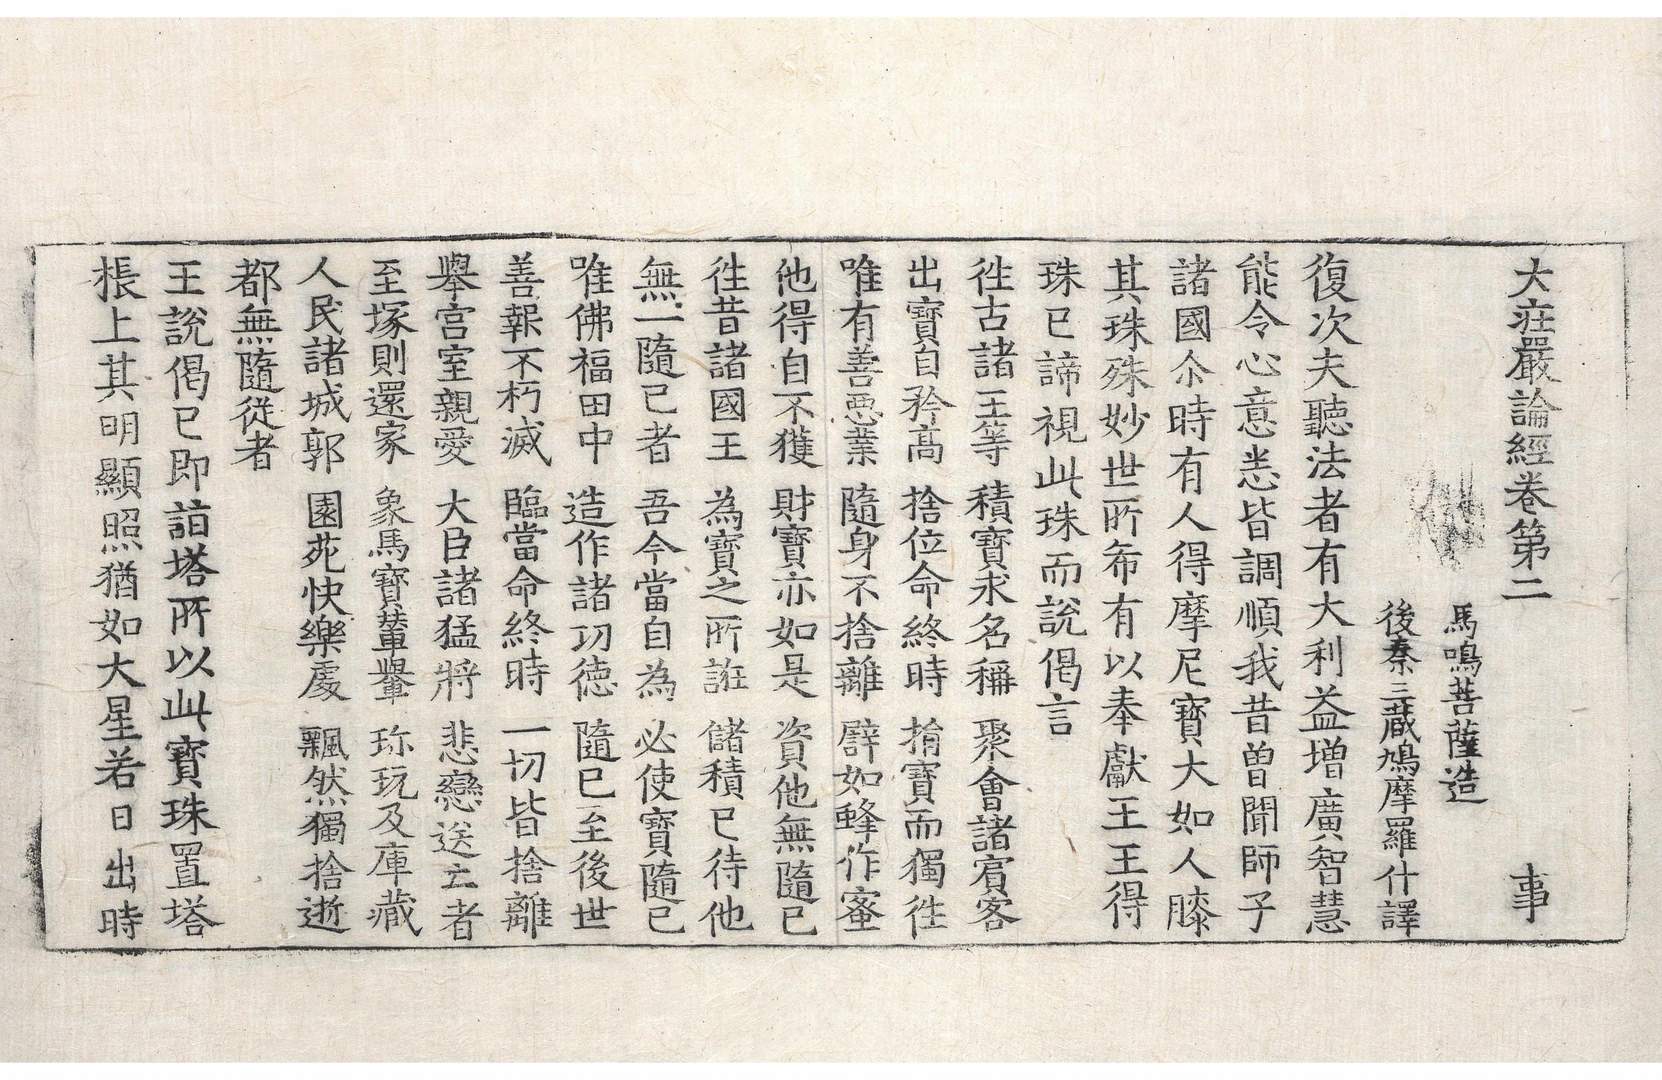 大莊嚴論經卷第二　事
馬鳴菩薩造
後秦三藏鳩摩羅什譯
復次夫聽法者有大利益增廣智慧
能令心意悉皆調順我昔曾聞師子
諸國尒時有人得摩尼寶大如人膝
其珠殊妙世所希有以奉獻王王得
珠已諦視此珠而說偈言
徃古諸王等　積寶求名稱　聚會諸賓客
出寶自矜高　捨位命終時　捐寶而獨徃
唯有善惡業　隨身不捨離　譬如蜂作蜜
他得自不獲　財寶亦如是　資他無隨已
徃昔諸國王　為寶之所誑　儲積已待他
無一隨已者　吾今當自為　必使寶隨已
唯佛福田中　造作諸功德　隨已至後世
善報不朽滅　臨當命終時　一切皆捨離
舉宮室親愛　大臣諸猛將　悲戀送去者
至塚則還家　象馬寶輦轝　珎玩及庫藏
人民諸城郭　園苑快樂處　飄然獨捨逝
都無隨從者
王說偈已即詣塔所以此寶珠置塔
棖上其明顯照猶如大星若日出時